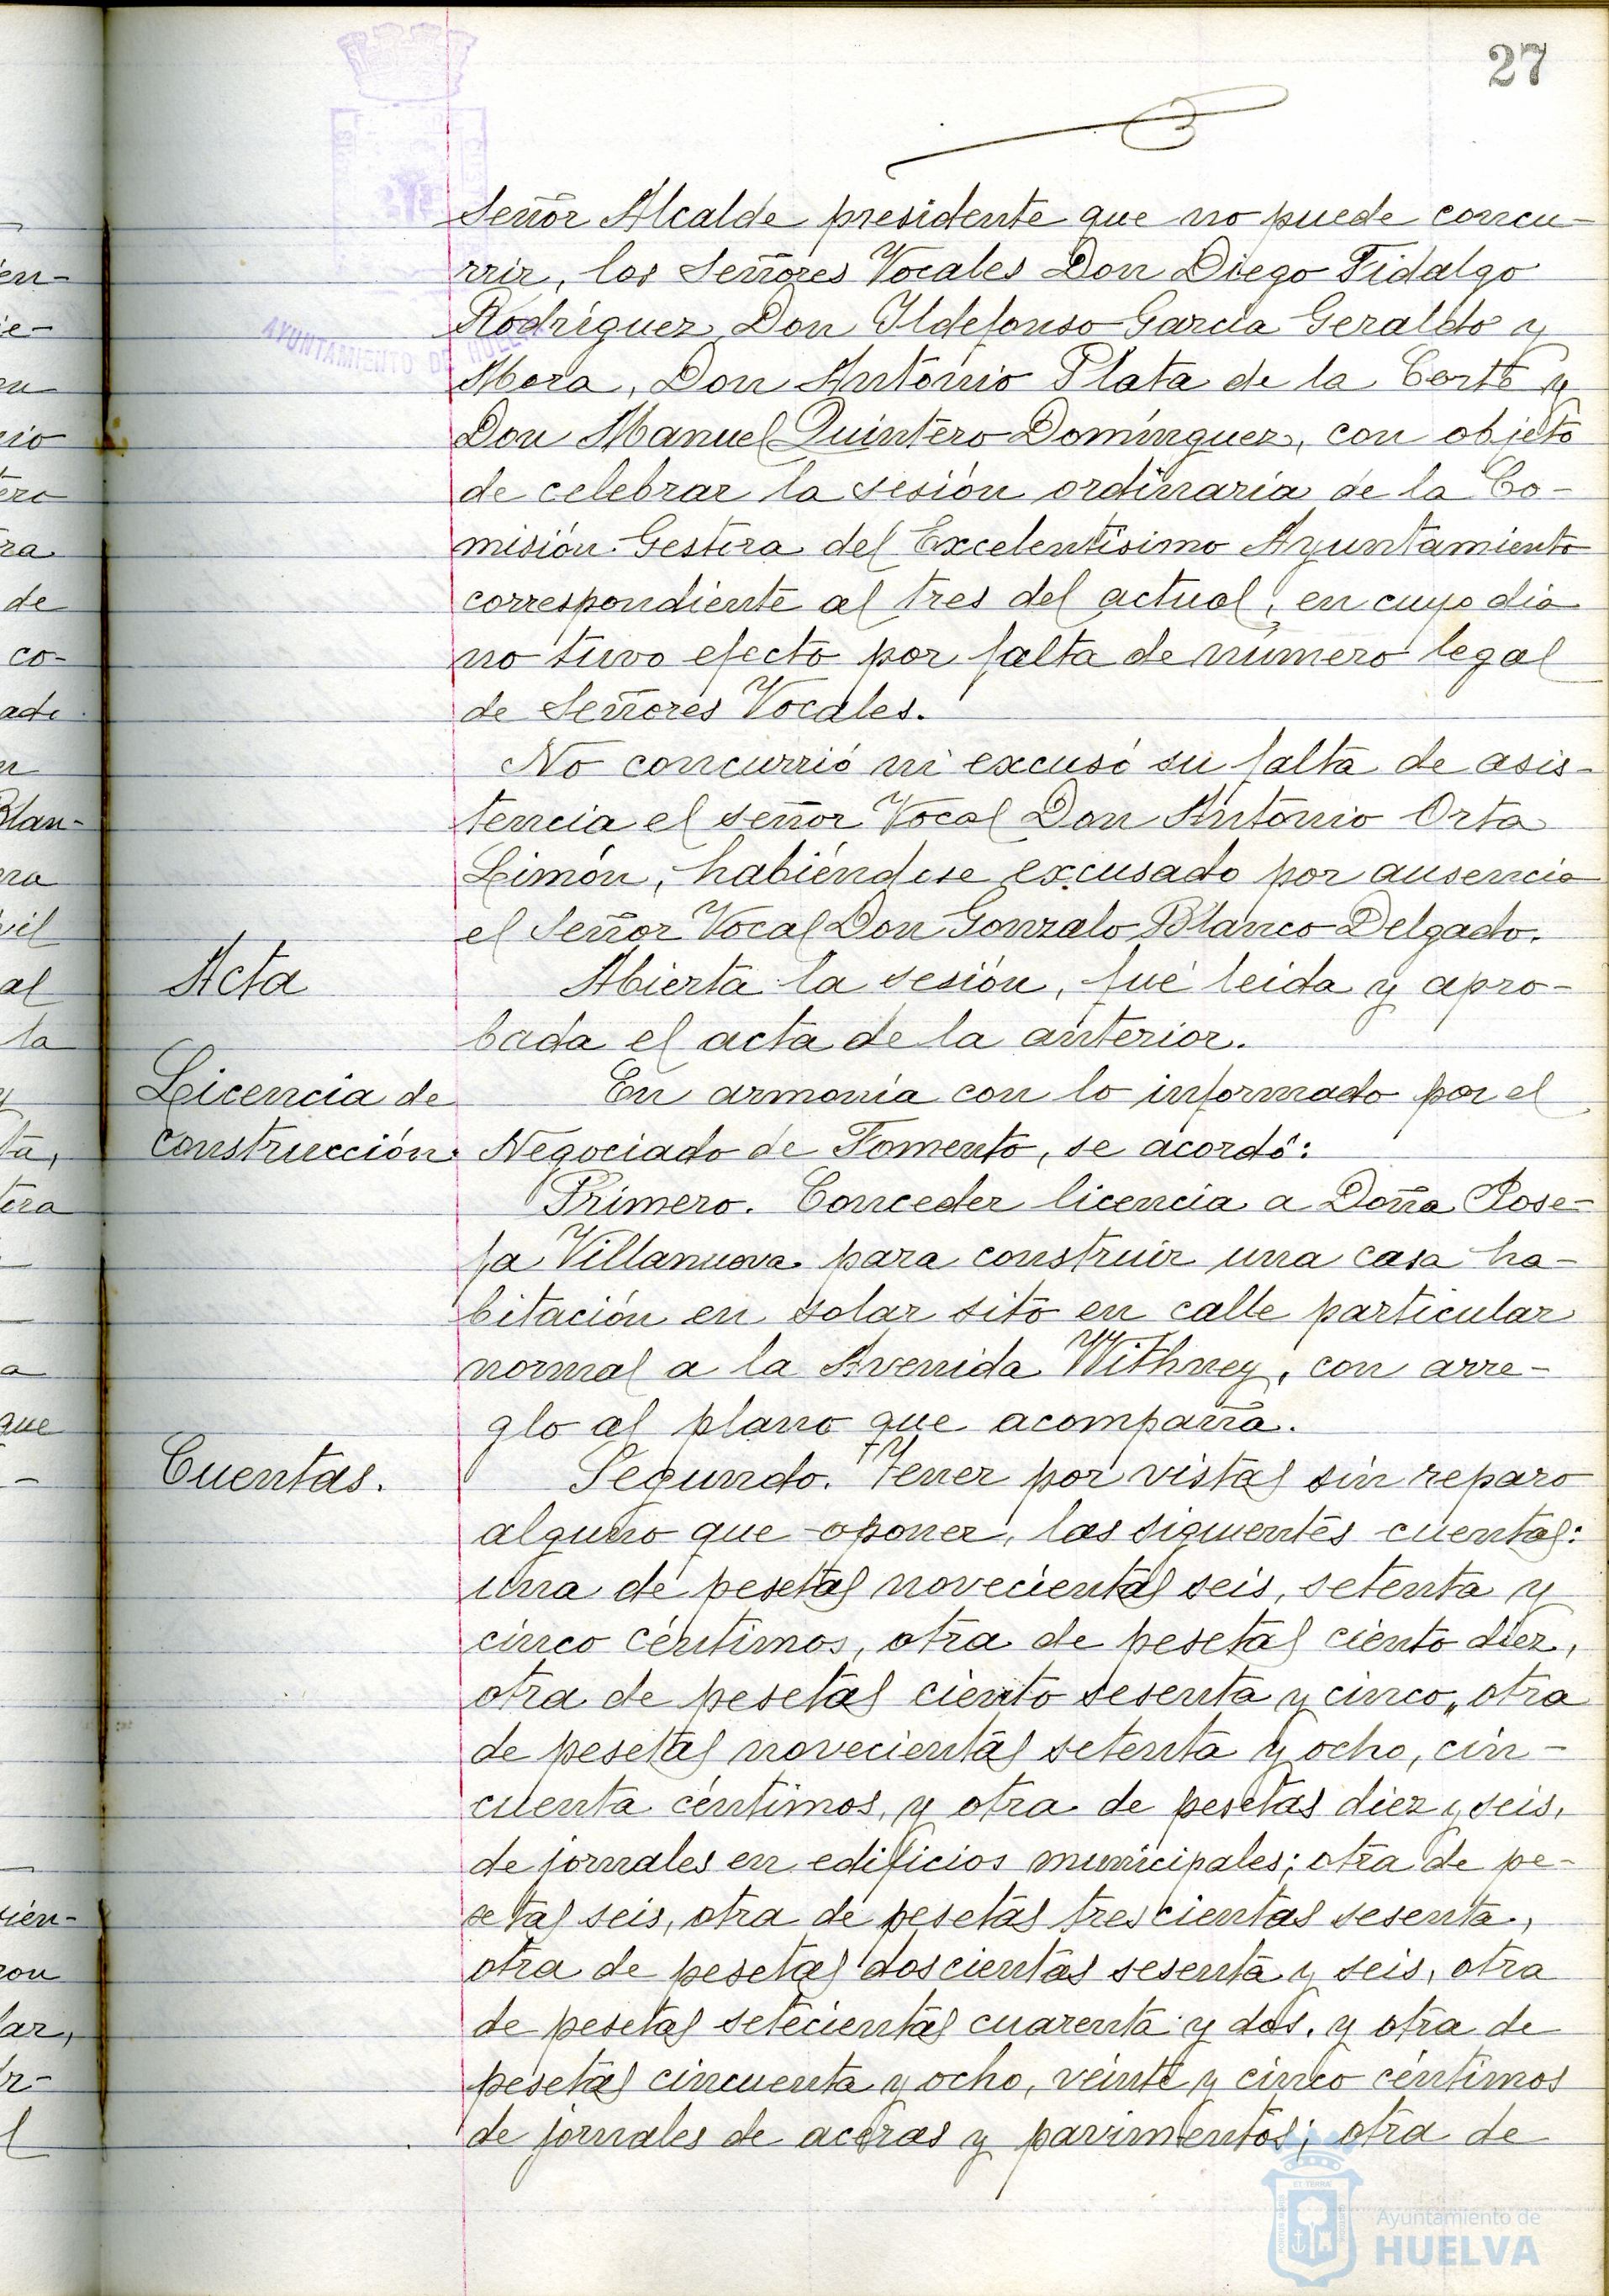 27
AYUNTAMIENTO DE HUELVA
Señor Alcalde presidente que no puede concu-
rrir, los Señores Vocales Don Diego Fidalgo
Rodríguez, Don Ildefonso Garcia Geraldo y
Mora, Don Antonio Plata de la Corte y
Don Manuel Quintero Domínguez, con objeto
de celebrar la sesión ordinaria de la Co-
misión Gestora del Excelentísimo Ayuntamiento
correspondiente al tres del actual, en cuyo dia
no tuvo efecto por falta de número legal
de Señores Vocales.
No concurrió ni excusó su falta de asis-
tencia el señor Vocal Don Antonio Orta
Limón, habiéndose excusado por ausencia
el Señor Vocal Don Gonzalo Blanco Delgado.
Acta
Abierta la sesión, fué leida y apro-
bada el acta de la anterior.
Licencia de
construcción.
En armonía con lo informado por el
Negociado de Fomento, se acordó:
Primero. Conceder licencia a Doña Jose-
fa Villanueva para construir una casa ha-
bitación en solar sito en calle particular
normal a la Avenida Withney, con arre-
glo al plano que acompaña.
Cuentas.
Segundo. Tener por vistas sin reparo
alguno que oponer, las siguientes cuentas:
una de pesetas novecientas seis, setenta y
cinco céntimos, otra de pesetas ciento diez,
otra de pesetas ciento sesenta y cinco, otra
de pesetas novecientas setenta y ocho, cin-
cuenta céntimos, y otra de pesetas diez y seis,
de jornales en edificios municipales; otra de pe-
setas seis, otra de pesetas trescientas sesenta,
otra de pesetas doscientas sesenta y seis, otra
de pesetas setecientas cuarenta y dos, y otra de
pesetas cincuenta y ocho, veinte y cinco céntimos
de jornales de aceras y pavimentos; otra de
Ayuntamiento de
HUELVA